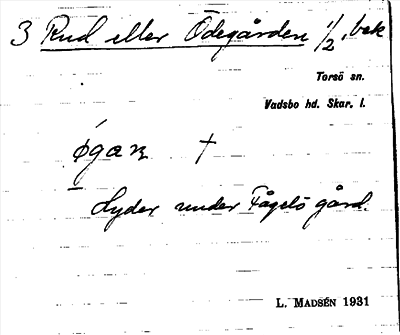 3 Rud eller Ödegården 1/2, bek
Torsö sn.
Vadsbo hd. Skar. l.
øgaɲ †
Lyder under Fågelö gård.
L. MADSÉN 1931